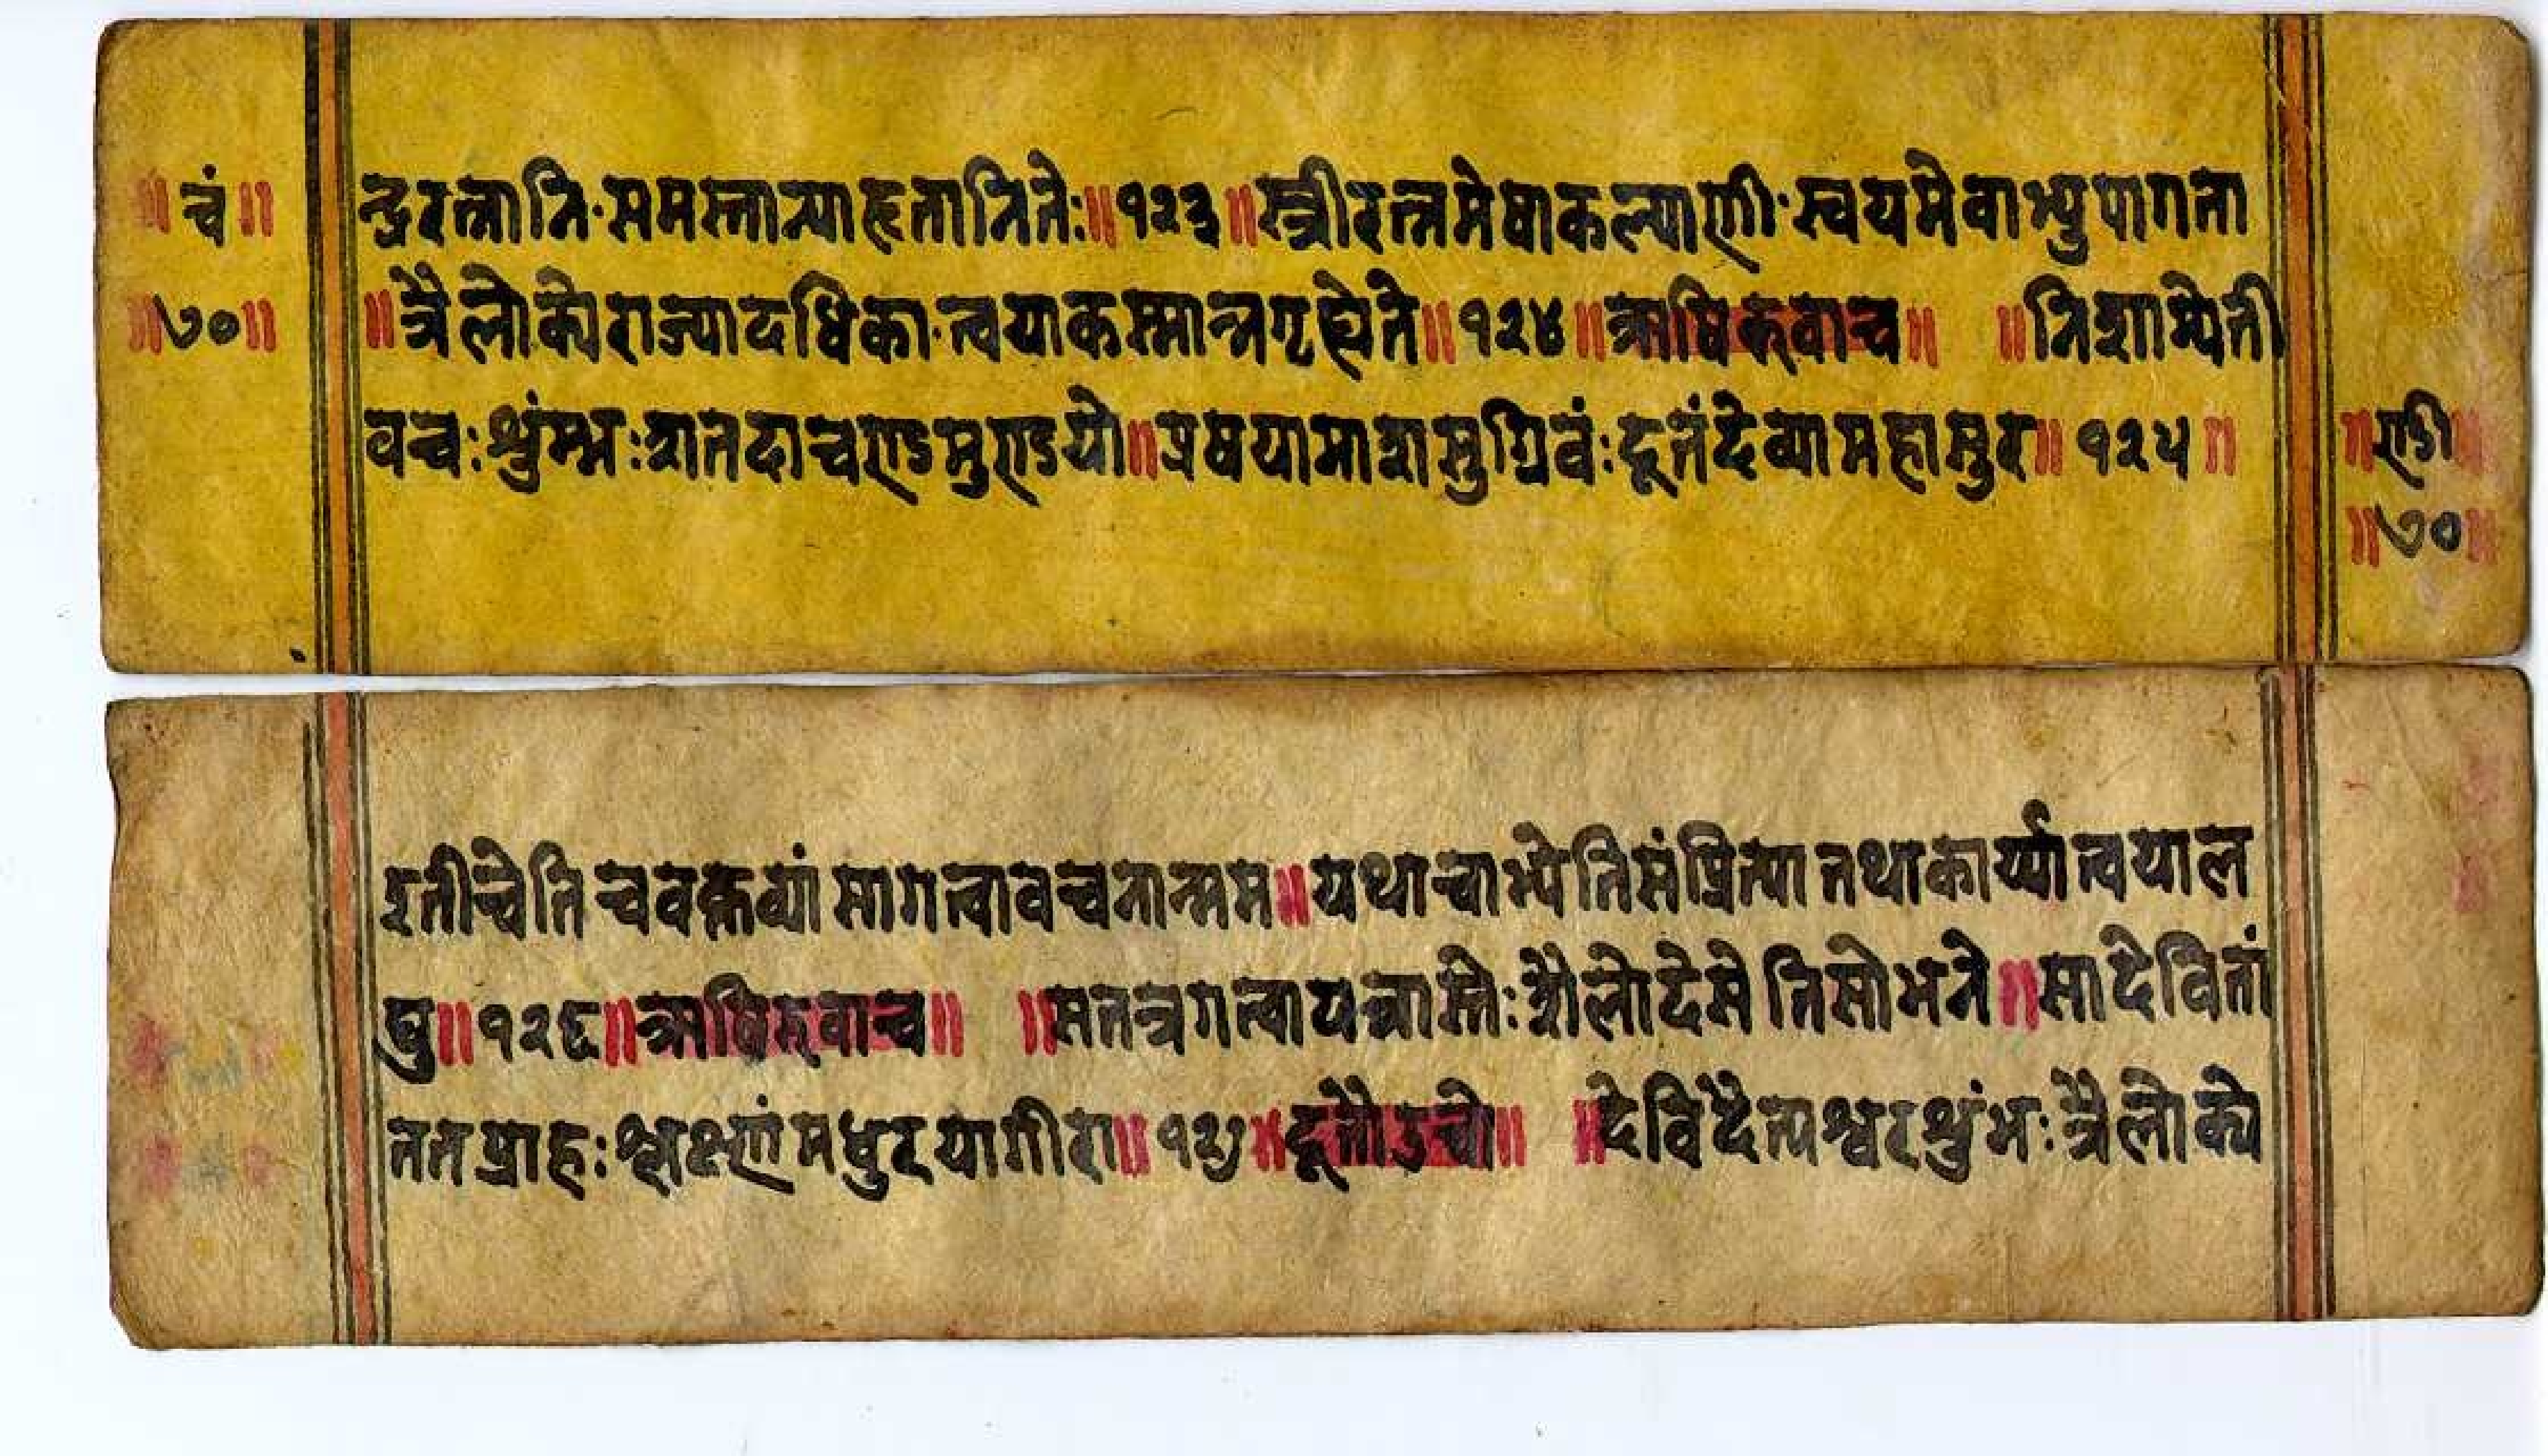 ॥ चं ॥
॥ ७० ॥
न्द्ररत्नानि·समस्तान्याहृतानिते:॥१२३॥स्त्रीरत्नमेषाकल्याणी·स्वयमेवाभ्युपागता
॥त्रैलोक्येराज्यादधिका·त्वयाकस्मान्नगृह्येते॥१२४॥ऋषिरुवाच॥ ॥निशम्येती
वच:श्रुंम्भ:शतदाचण्डमुण्डयो॥प्रषयामाशसुग्रिवं:दूतंदेव्यामहासुर॥१२५॥
॥ण्डी॥
॥७०॥
इतीचेतिचवक्तव्यांसागत्वावचनान्मम॥यथाचाभ्येतिसंप्रित्यातथाकार्य्यात्वयाल
घु॥१२६॥ऋषिरुवाच॥ ॥सतत्रगत्वायत्रास्ते:शैलोदेसेतिसोभने॥सादेवितां
ततप्राह:श्लक्ष्णंमधुरयागीरा॥१२७॥दूतौउचो॥ ॥देविदैत्यश्वरश्रुंभ:त्रैलोक्ये